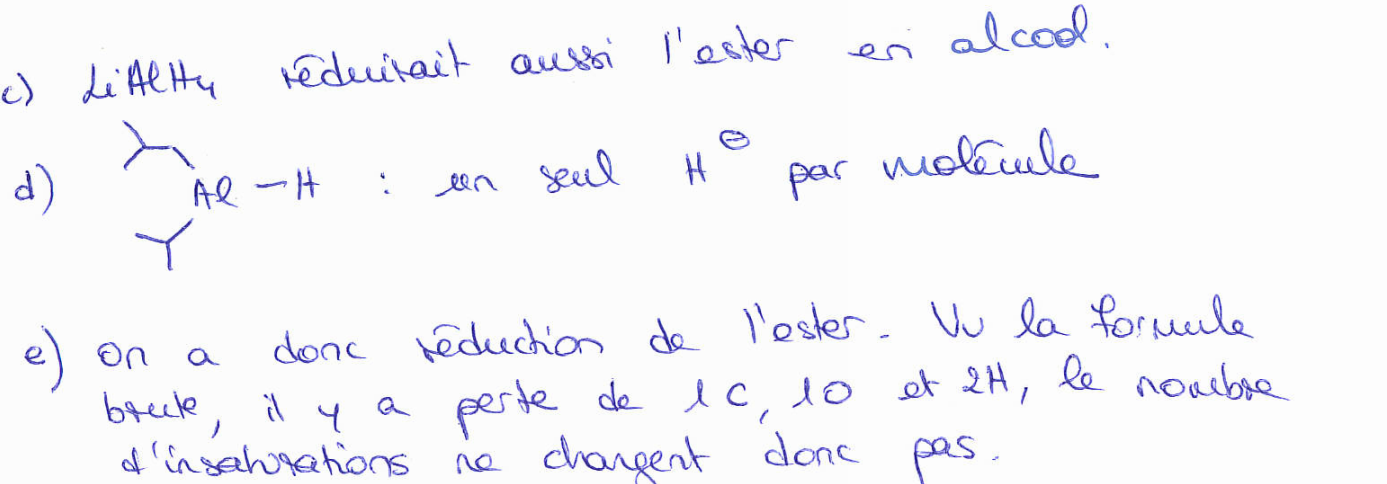 c) LiAlH4 réduirait aussi l'ester en alcool.
d) Al-H : un seul H⊖ par molécule
e) on a donc réduction de l'ester. Vu la formule
brute, il y a perte de 1C, 1O et 2H, le nombre
d'insaturations ne changent donc pas.